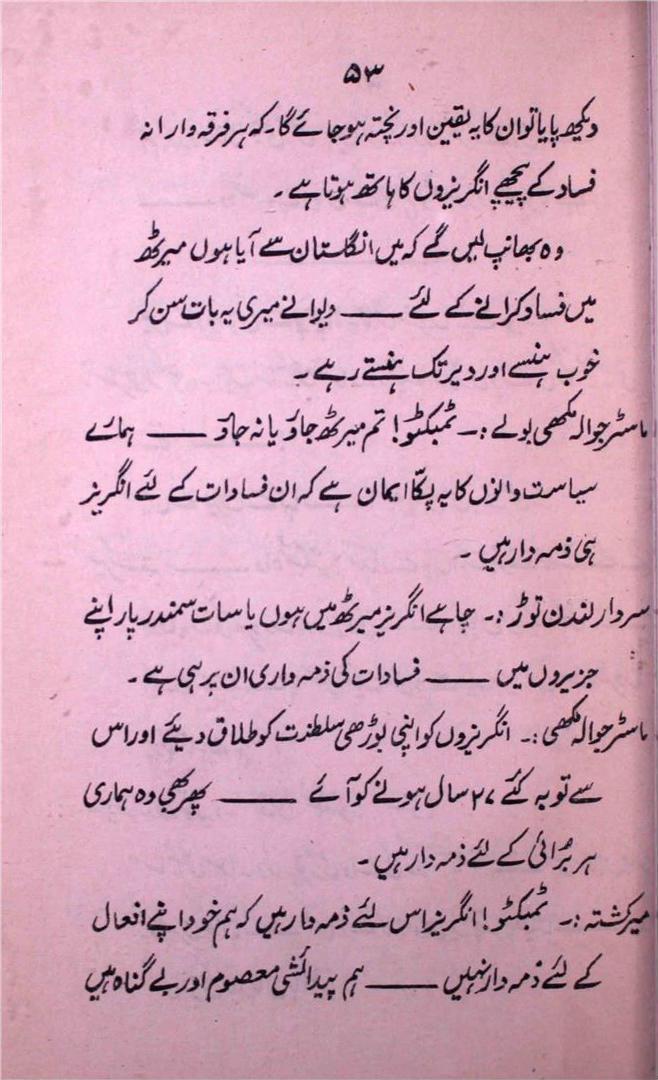 ۵۳
دیکھ پایا تو ان کا یہ یقین اور پختہ ہو جائے گا۔ کہ ہر فرقہ وارانہ
فساد کے پیچھے انگریزوں کا ہاتھ ہوتا ہے ۔
وہ بھانپ لیں گے کہ میں انگلستان سے آیا ہوں میرٹھ
میں فساد کرانے کے لئے ــــــ دیوانے میری یہ بات سن کر
خوب ہنسے اور دیر تک ہنستے رہے ۔
ماسٹر جوالہ مکھی بولے :۔ ٹمبکٹو! تم میرٹھ جاؤ یا نہ جاؤ ــــــ ہمارے
سیاست دانوں کا یہ پکّا ایمان ہے کہ ان فسادات کے لئے انگریز
ہی ذمہ دار ہیں ۔
سردار لندن توڑ :۔ چاہے انگریز میرٹھ میں ہوں یا سات سمندر پار اپنے
جزیروں میں ــــــ فسادات کی ذمہ داری ان پر ہی ہے ۔
ماسٹر جوالہ مکھی :۔ انگریزوں کو اپنی بوڑھی سلطنت کو طلاق دیئے اور اس
سے توبہ کئے ۲۷ سال ہونے کو آئے ــــــ پھر بھی وہ ہماری
ہر بُرائی کے لئے ذمہ دار ہیں ۔
میر کشتہ :۔ ٹمبکٹو! انگریز اس لئے ذمہ دار ہیں کہ ہم خود اپنے افعال
کے لئے ذمہ دار نہیں ــــــ ہم پیدائشی معصوم اور بے گناہ ہیں